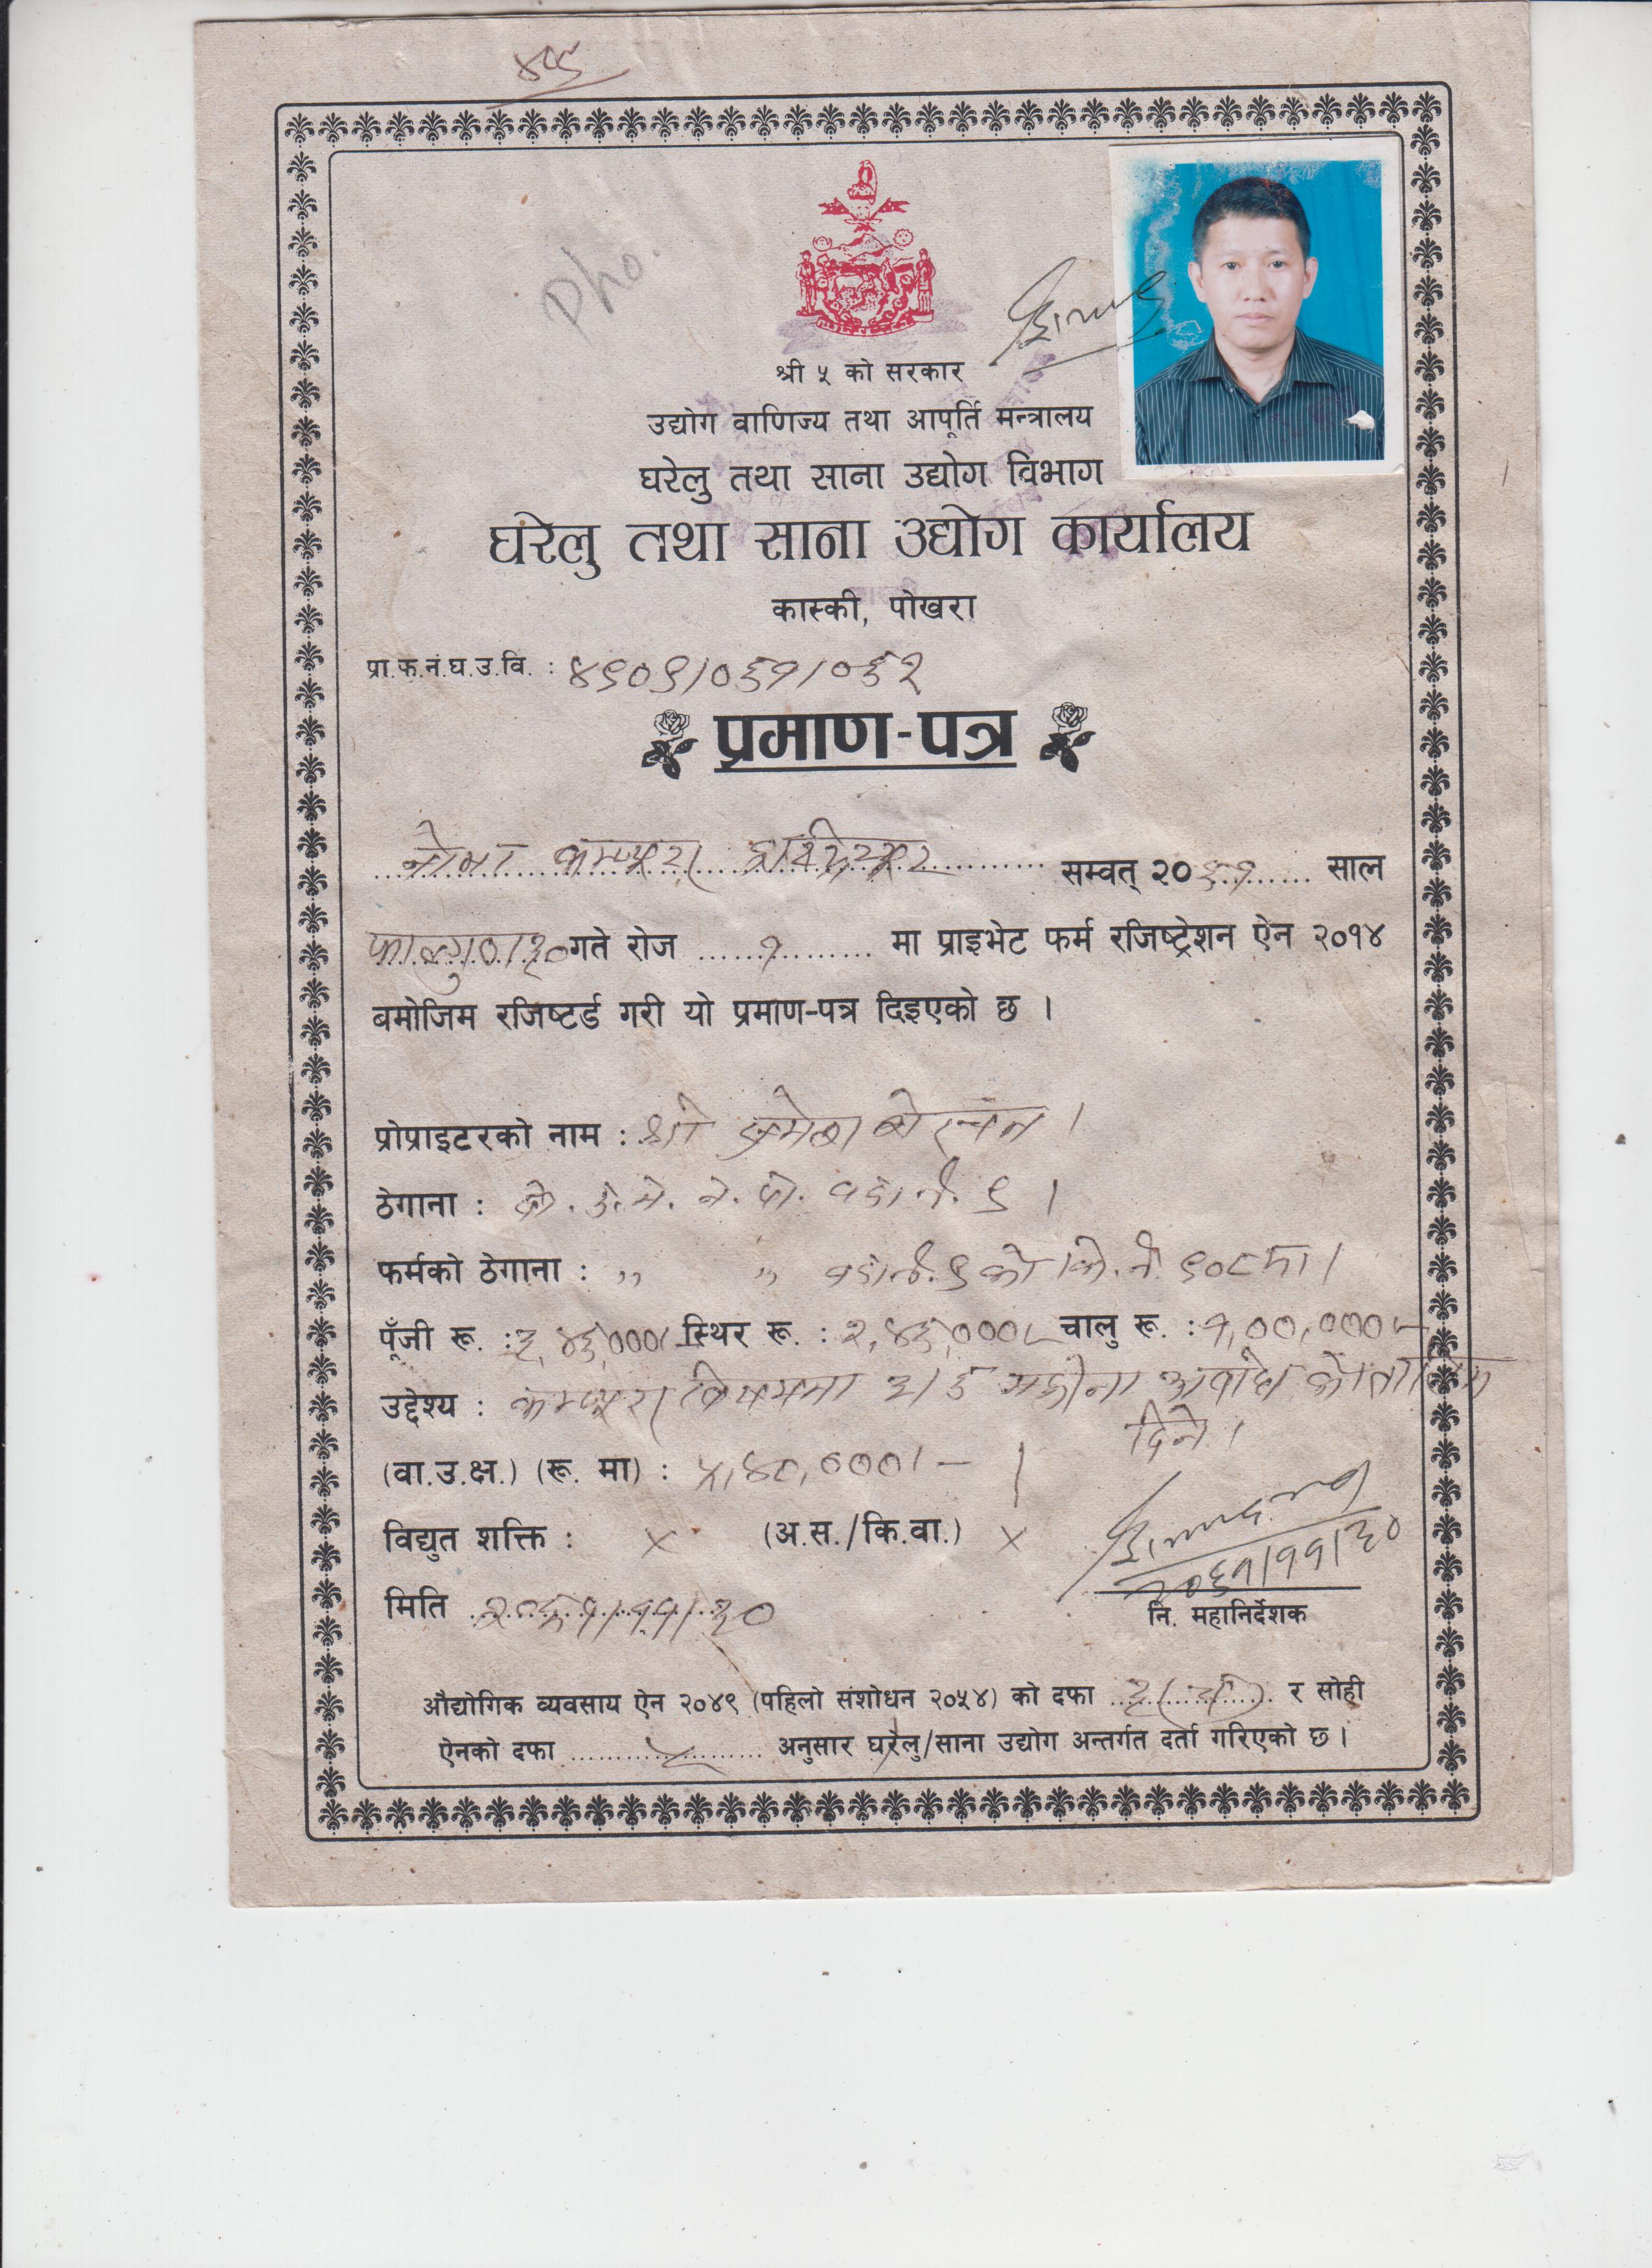 Pho.
श्री ५ को सरकार
उद्योग वाणिज्य तथा आपूर्ति मन्त्रालय
घरेलु तथा साना उद्योग विभाग
घरेलु तथा साना उद्योग कार्यालय
कास्की, पोखरा
प्रा.फ.नं.घ.उ.वि. : ४९०९/०६१/०६२
प्रमाण-पत्र
कम्प्यूटर सम्वत् २०६१ साल
फाल्गुण ३० गते रोज १ मा प्राइभेट फर्म रजिष्ट्रेशन ऐन २०१४
बमोजिम रजिष्टर्ड गरी यो प्रमाण-पत्र दिइएको छ ।
प्रोप्राइटरको नाम : श्री शेरचन ।
ठेगाना : पो. उ. म. न. पा. वडा नं. ९ ।
फर्मको ठेगाना : ,, ,, वडा नं. ९ को कि. नं. ९०८ मा ।
पूँजी रू. : ३,४६,०००/- स्थिर रू. : २,४६,०००/- चालु रू. : १,००,०००/-
उद्देश्य : कम्प्यूटर विषयमा ३/६ महीना अवधि को तालिम
दिने ।
(वा.उ.क्ष.) (रू. मा) : ५,४०,०००/- ।
विद्युत शक्ति : × (अ.स./कि.वा.) ×
२०६१/११/३०
मिति २०६१/११/३०
नि. महानिर्देशक
औद्योगिक व्यवसाय ऐन २०४९ (पहिलो संशोधन २०५४) को दफा र सोही
ऐनको दफा अनुसार घरेलु/साना उद्योग अन्तर्गत दर्ता गरिएको छ ।